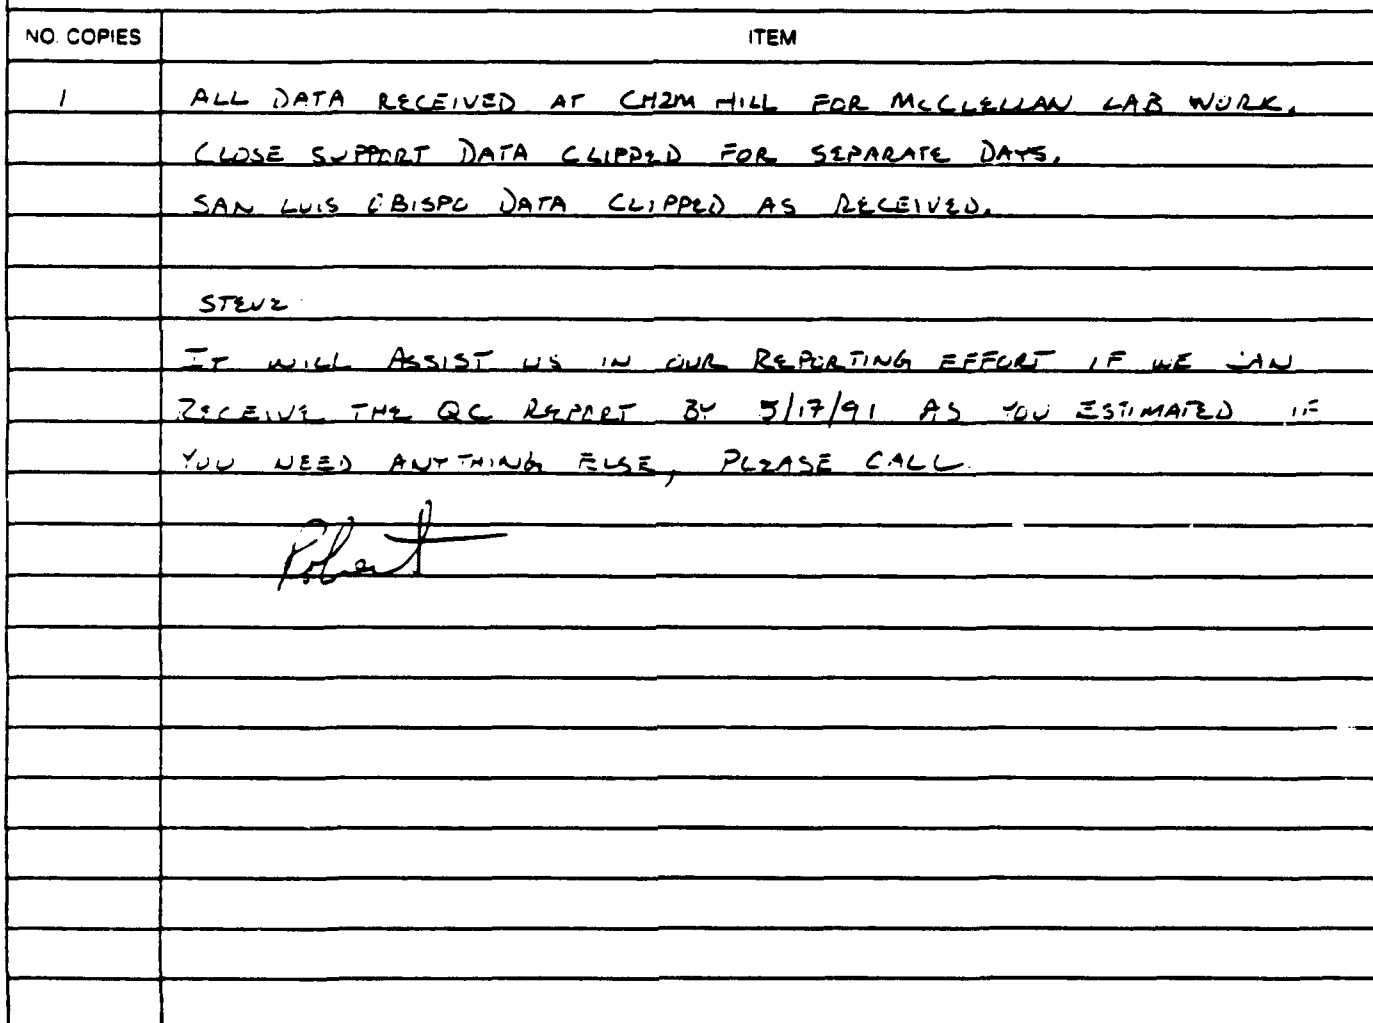 NO. COPIES ITEM
1 ALL DATA RECEIVED AT CH2M HILL FOR MCCLELLAN LAB WORK.
CLOSE SUPPORT DATA CLIPPED FOR SEPARATE DAYS.
SAN LUIS OBISPO DATA CLIPPED AS RECEIVED.
STEVE
IT WILL ASSIST US IN OUR REPORTING EFFORT IF WE CAN
RECEIVE THE QC REPORT BY 5/17/91 AS YOU ESTIMATED IF
YOU NEED ANYTHING ELSE, PLEASE CALL.
Robert